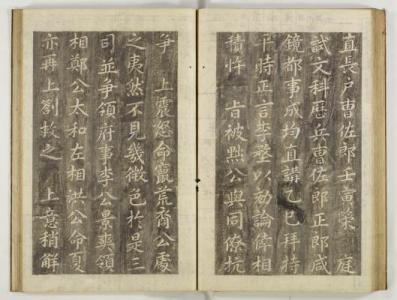 直長戶曹佐郎壬寅榮 庭
試文科歷兵曹佐郎正郎咸
鏡都事成均直講乙巳拜持
平時正言李 以 論許相
積忤 旨被黜公與同僚抗
爭 上震怒命竄荒裔公處
之夷然不見幾微色於是三
司並爭領府事李公景奭領
相鄭公太和左相洪公命夏
亦再上劄救之 上意稍解